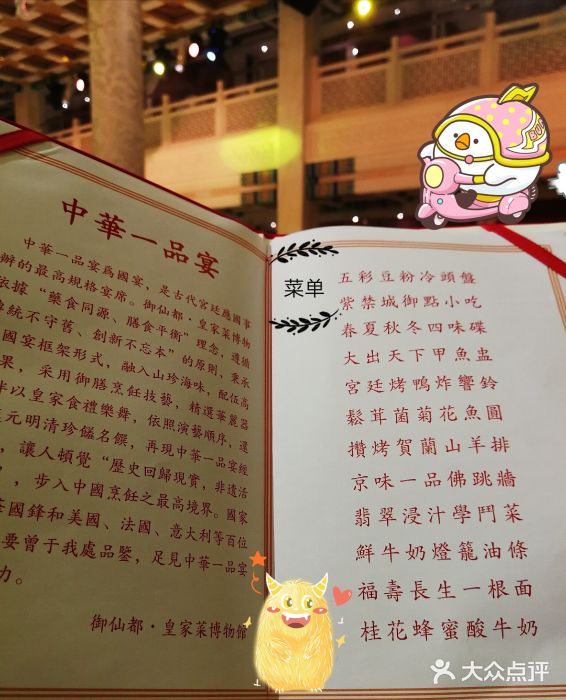 中華一品宴
中華一品宴爲國宴，是古代宮廷應國事
辦的最高規格宴席。御仙都·皇家菜博物
依據“藥食同源、膳食平衡”理念，遵循
傳統不守舊、創新不忘本”的原則，秉承
國宴框架形式，融入山珍海味，配伍高
果，采用御膳烹飪技藝，精選華麗器
以皇家食禮樂舞，依照演藝順序，還
元明清珍饈名饌，再現中華一品宴經
，讓人頓覺“歷史回歸現實，非遺活
”，步入中國烹飪之最高境界。國家
國鋒和美國、法國、意大利等百位
要曾于我處品鑒，足見中華一品宴
力。
御仙都·皇家菜博物館
菜单
五彩豆粉冷頭盤
紫禁城御點小吃
春夏秋冬四味碟
大出天下甲魚盅
宮廷烤鴨炸響鈴
鬆茸菌菊花魚圓
攢烤賀蘭山羊排
京味一品佛跳牆
翡翠浸汁學鬥菜
鮮牛奶燈籠油條
福壽長生一根面
桂花蜂蜜酸牛奶
大众点评